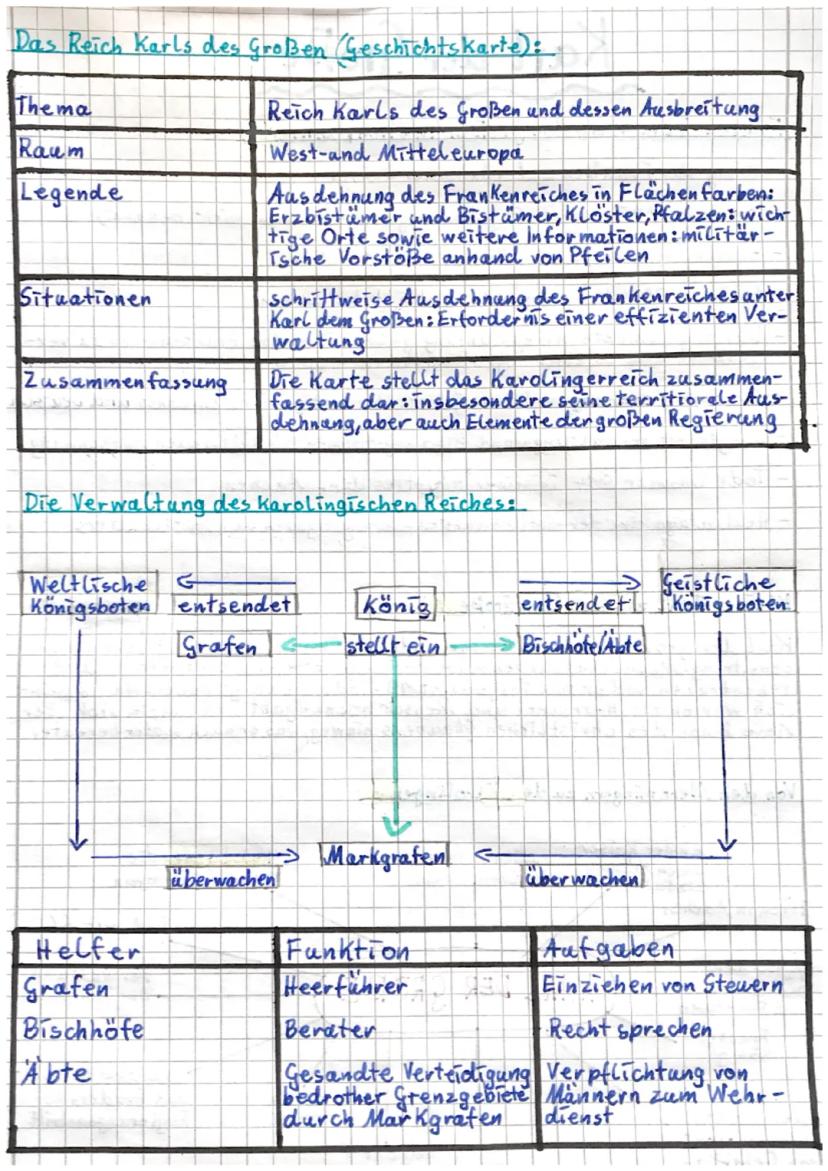 Das Reich Karls des Großen (Geschichtskarte):
Thema
Reich Karls des Großen und dessen Ausbreitung
Raum
West-und Mitteleuropa
Legende
Ausdehnung des Frankenreiches in Flächenfarben:
Erzbistümer und Bistümer, Klöster, Pfalzen: wich-
tige Orte sowie weitere Informationen: militär-
ische Vorstöße anhand von Pfeilen
Situationen
schrittweise Ausdehnung des Frankenreiches unter
Karl dem Großen: Erfordernis einer effizienten Ver-
waltung
Zusammenfassung
Die Karte stellt das Karolingerreich zusammen-
fassend dar: insbesondere seine territiorale Aus-
dehnung, aber auch Elemente der großen Regierung
Die Verwaltung des karolingischen Reiches:
Weltlische
Königsboten
entsendet
König
entsendet
Geistliche
Königsboten
Grafen
stellt ein
Bischhöfe/Äbte
Markgrafen
überwachen
überwachen
Helfer
Funktion
Aufgaben
Grafen
Heerführer
Einziehen von Steuern
Bischhöfe
Berater
Recht sprechen
Äbte
Gesandte Verteidigung
bedrother Grenzgebiete
durch Markgrafen
Verpflichtung von
Männern zum Wehr-
dienst